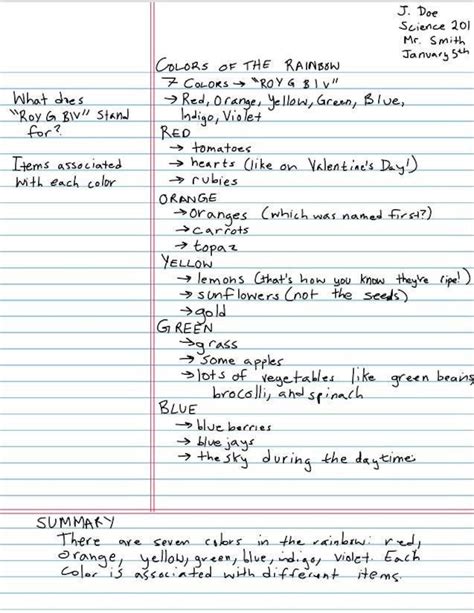 J. Doe
Science 201
Mr. Smith
January 5th
COLORS OF THE RAINBOW
7 COLORS → "ROY G BIV"
→ Red, Orange, Yellow, Green, Blue,
Indigo, Violet
What does
"ROY G BIV" stand
for?
Items associated
with each color
RED
→ tomatoes
→ hearts (like on Valentine's Day!)
→ rubies
ORANGE
→ oranges (which was named first?)
→ carrots
→ topaz
YELLOW
→ lemons (that's how you know they're ripe!)
→ sunflowers (not the seeds)
→ gold
GREEN
→ grass
→ some apples
→ lots of vegetables like green beans,
brocolli, and spinach
BLUE
→ blueberries
→ blue jays
→ the sky during the daytime
SUMMARY
There are seven colors in the rainbow: red,
orange, yellow, green, blue, indigo, violet. Each
color is associated with different items.